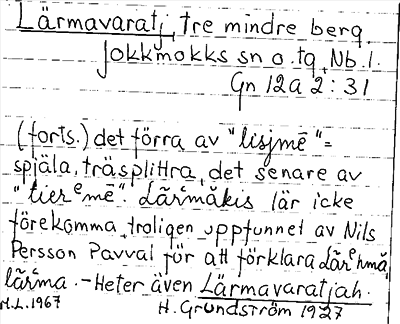 Lärmavaratj, tre mindre berg.
Jokkmokks sn o. tg, Nb. l.
Gn 12a 2:31
(forts.) det förra av "lisjmē" =
spjäla, träsplittra, det senare av
"lierᵉmē". Lārᵉmăkis lär icke
förekomma, troligen uppfunnet av Nils
Persson Pavval för att förklara
lārᵉma. - Heter även Lärmavaratjah.
M.L. 1967 H. Grundström 1927